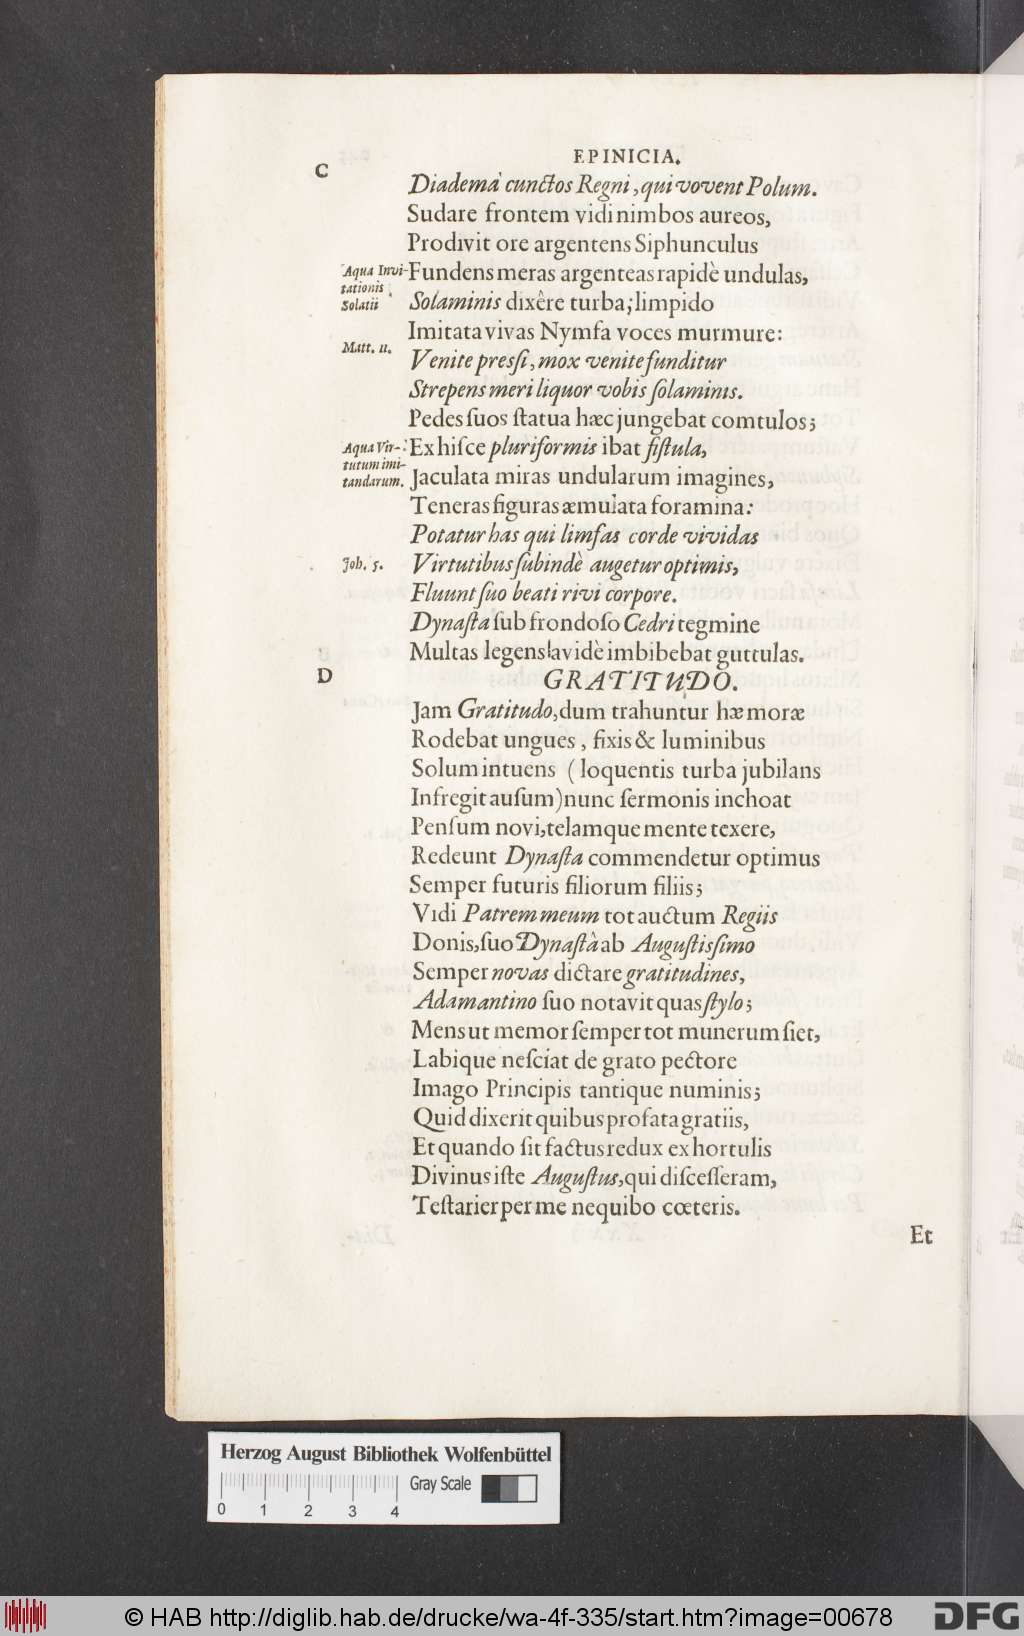 EPINICIA.
C
Diadema cunctos Regni, qui vovent Polum.
Sudare frontem vidi nimbos aureos,
Prodivit ore argentens Siphunculus
Aqua Invi-
tationis
Solatii
Fundens meras argenteas rapidè undulas,
Solaminis dixêre turba; limpido
Imitata vivas Nymfa voces murmure:
Matt. 11.
Venite pressi, mox venite funditur
Strepens meri liquor vobis ſolaminis.
Pedes ſuos ſtatua hæc jungebat comtulos;
Aqua Vir-
tutum imi-
tandarum.
Ex hiſce pluriformis ibat fiſtula,
Jaculata miras undularum imagines,
Teneras figuras æmulata foramina:
Potatur has qui limfas corde vividas
Joh. 5.
Virtutibus ſubindè augetur optimis,
Fluunt ſuo beati rivi corpore.
Dynaſta ſub frondoſo Cedri tegmine
Multas legens lavidè imbibebat guttulas.
D
GRATITUDO.
Jam Gratitudo, dum trahuntur hæ moræ
Rodebat ungues, fixis & luminibus
Solum intuens (loquentis turba jubilans
Infregit auſum) nunc ſermonis inchoat
Penſum novi, telamque mente texere,
Redeunt Dynaſta commendetur optimus
Semper futuris filiorum filiis;
Vidi Patrem meum tot auctum Regiis
Donis, ſuo Dynaſtâ ab Auguſtisſimo
Semper novas dictare gratitudines,
Adamantino ſuo notavit quas ſtylo;
Mens ut memor ſemper tot munerum ſiet,
Labique neſciat de grato pectore
Imago Principis tantique numinis;
Quid dixerit quibus profata gratiis,
Et quando ſit factus redux ex hortulis
Divinus iſte Auguſtus, qui diſceſſeram,
Teſtarier per me nequibo cœteris.
Et
Herzog August Bibliothek Wolfenbüttel
Gray Scale
0 1 2 3 4
© HAB http://diglib.hab.de/drucke/wa-4f-335/start.htm?image=00678
DFG